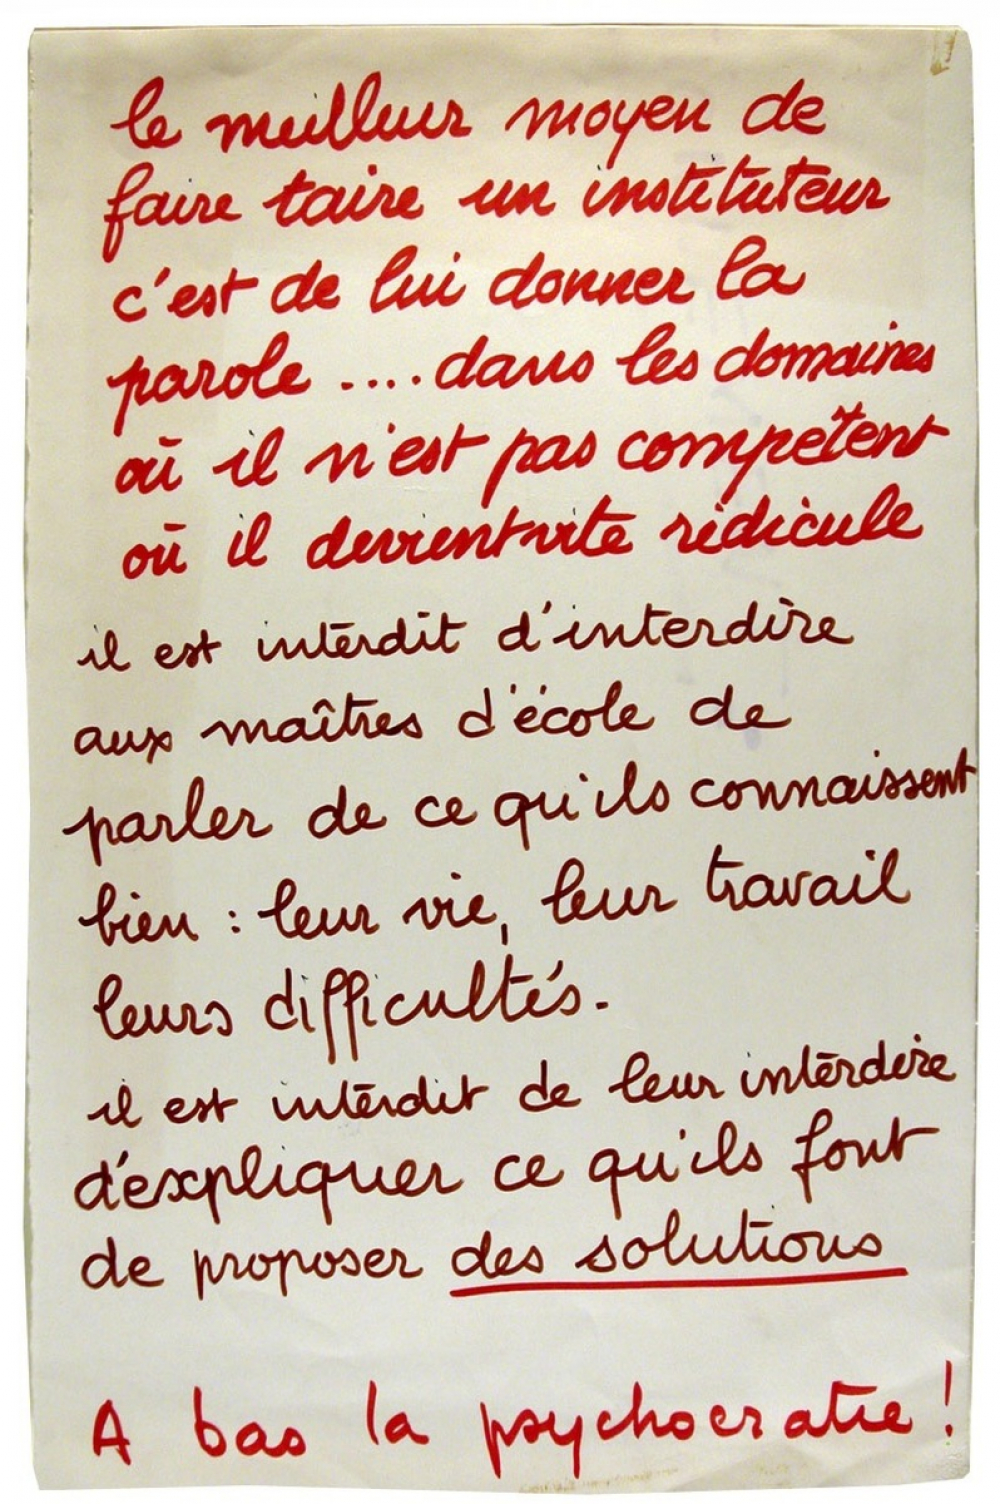 le meilleur moyen de
faire taire un instituteur
c'est de lui donner la
parole .... dans les domaines
où il n'est pas compétent
où il devient vite ridicule
il est interdit d'interdire
aux maîtres d'école de
parler de ce qu'ils connaissent
bien : leur vie, leur travail
leurs difficultés.
il est interdit de leur interdire
d'expliquer ce qu'ils font
de proposer des solutions
A bas la psychocratie !